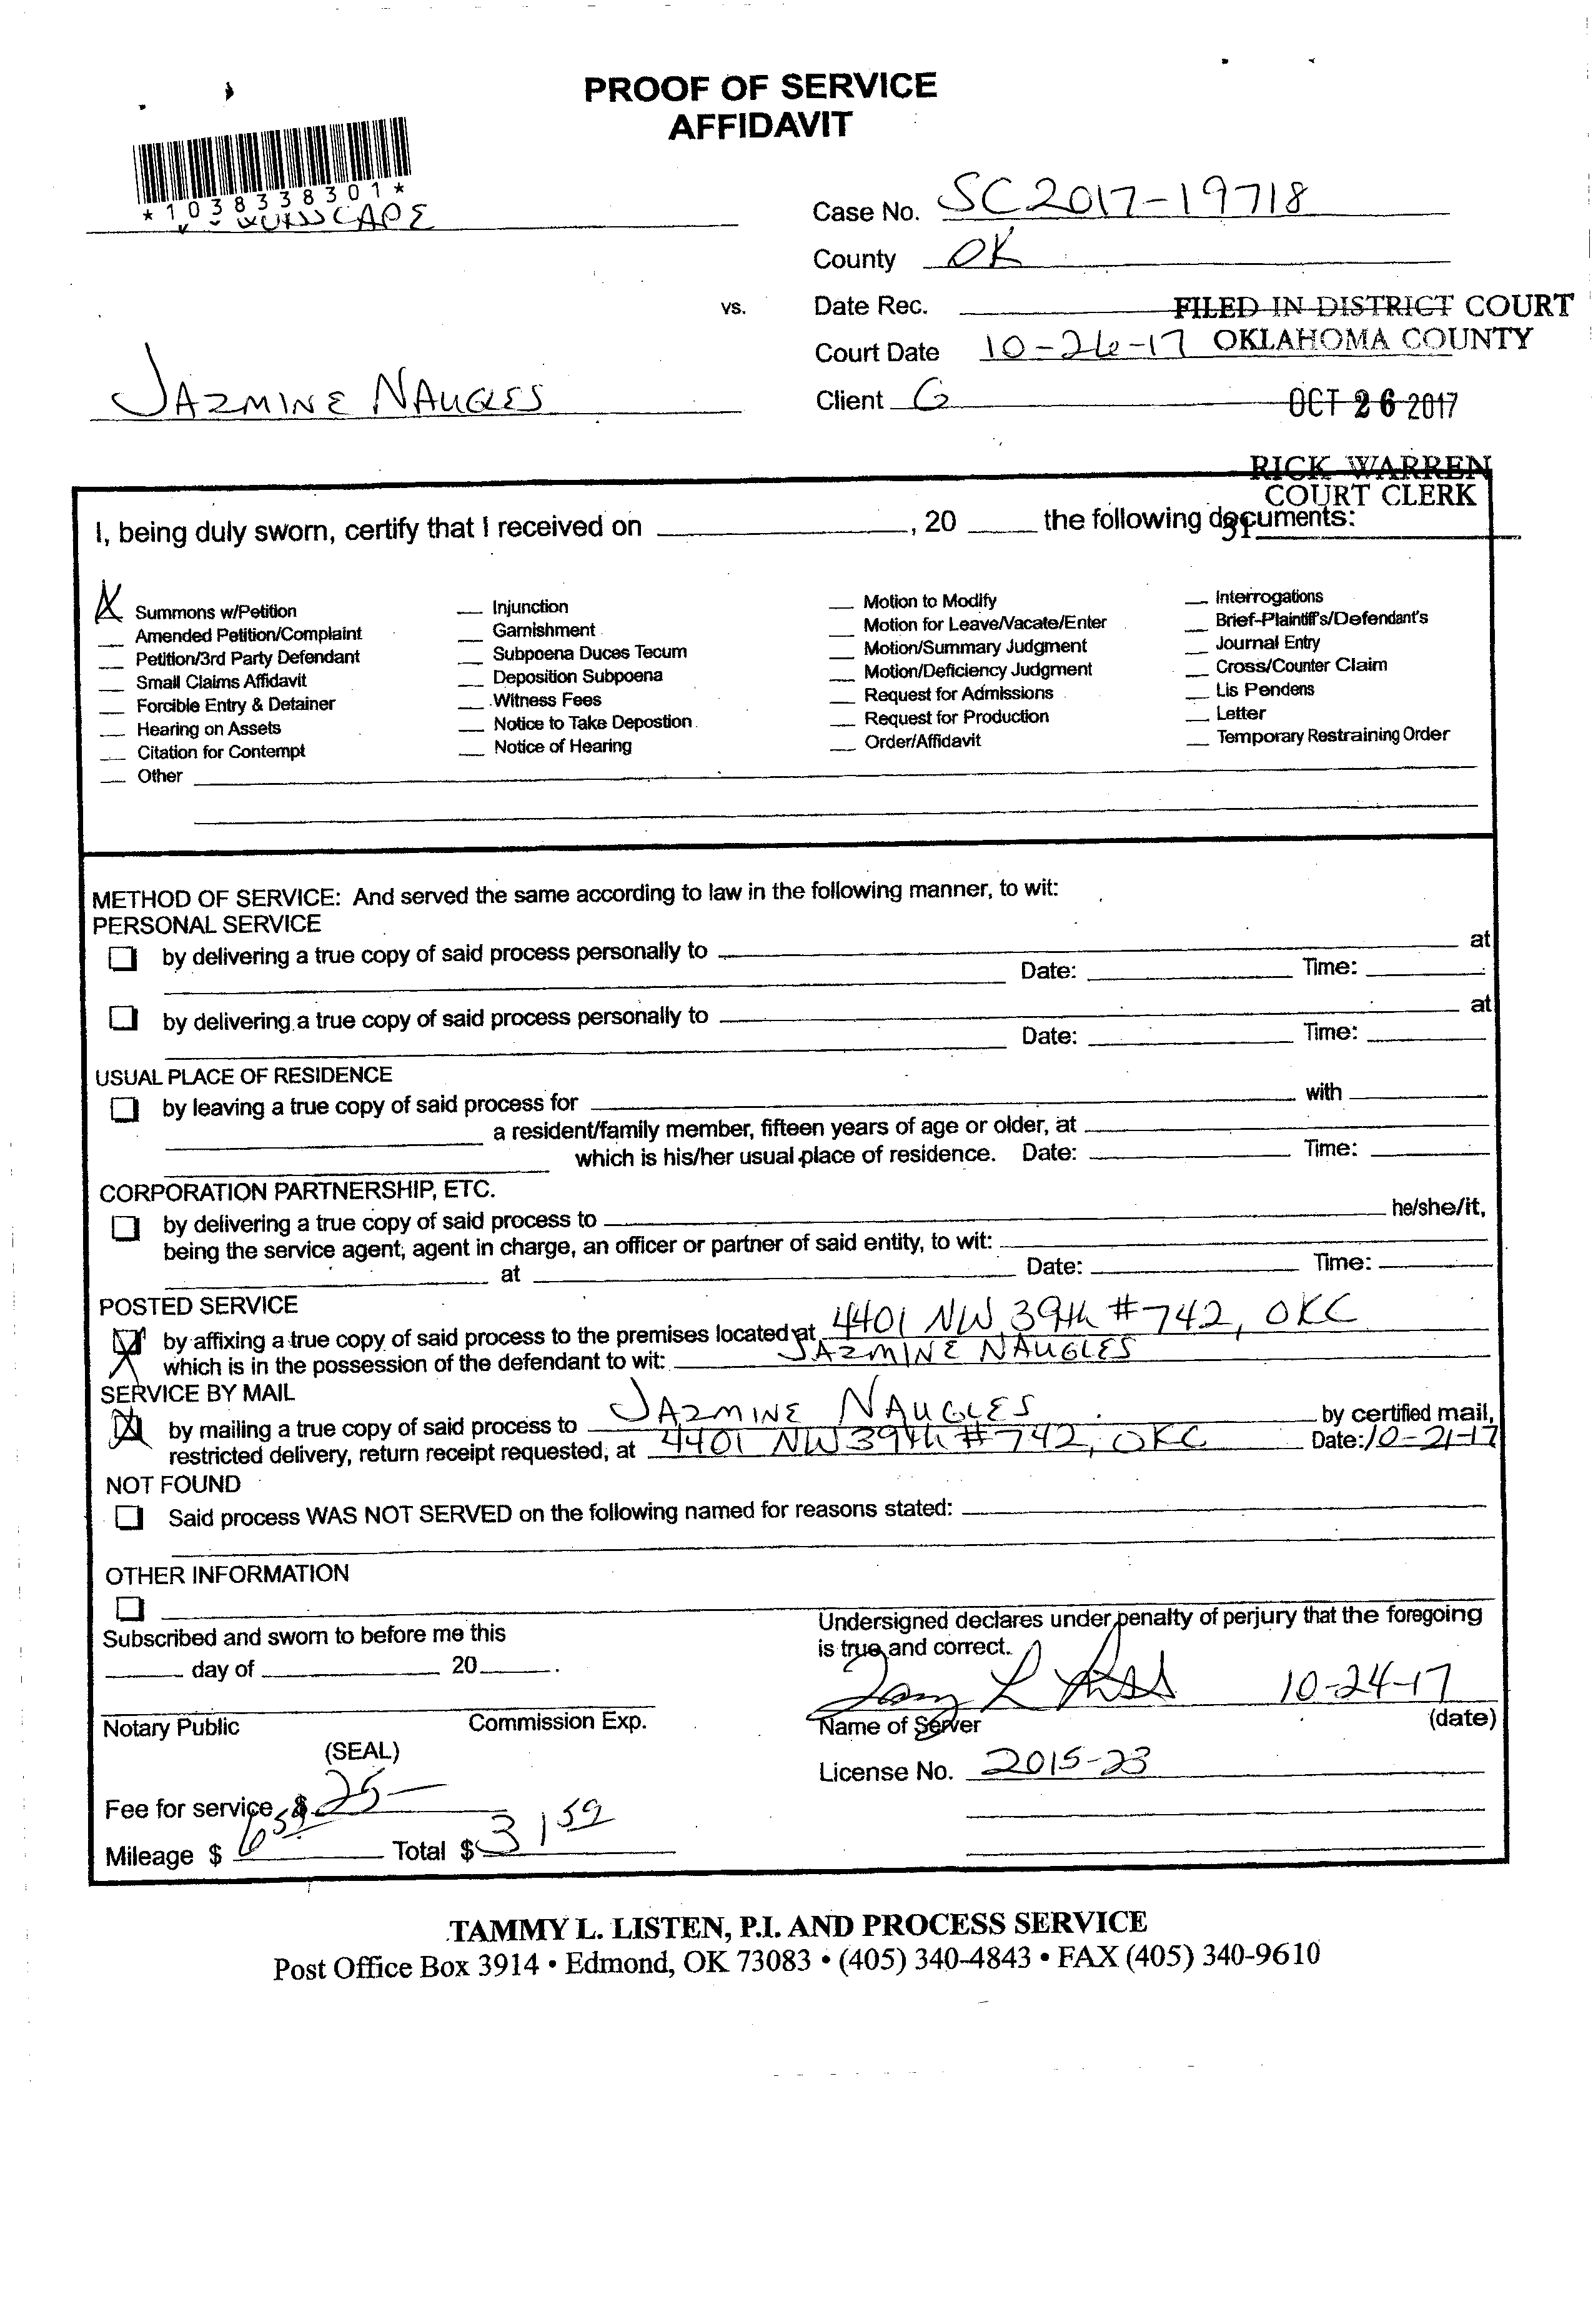 PROOF OF SERVICE
AFFIDAVIT
*1038338301*
Case No. SC2017-19718
County OK
vs.
Date Rec.
FILED IN DISTRICT COURT
Court Date 10-26-17
OKLAHOMA COUNTY
JAZMINE NAUGLES
Client G
OCT 26 2017
RICK WARREN
COURT CLERK
I, being duly sworn, certify that I received on ____, 20 ____ the following documents:
X Summons w/Petition
__ Amended Petition/Complaint
__ Petition/3rd Party Defendant
__ Small Claims Affidavit
__ Forcible Entry & Detainer
__ Hearing on Assets
__ Citation for Contempt
__ Other
__ Injunction
__ Garnishment
__ Subpoena Duces Tecum
__ Deposition Subpoena
__ Witness Fees
__ Notice to Take Depostion
__ Notice of Hearing
__ Motion to Modify
__ Motion for Leave/Vacate/Enter
__ Motion/Summary Judgment
__ Motion/Deficiency Judgment
__ Request for Admissions
__ Request for Production
__ Order/Affidavit
__ Interrogations
__ Brief-Plaintiff's/Defendant's
__ Journal Entry
__ Cross/Counter Claim
__ Lis Pendens
__ Letter
__ Temporary Restraining Order
METHOD OF SERVICE: And served the same according to law in the following manner, to wit:
PERSONAL SERVICE
by delivering a true copy of said process personally to ____ at
____ Date: ____ Time: ____
by delivering a true copy of said process personally to ____ at
____ Date: ____ Time: ____
USUAL PLACE OF RESIDENCE
by leaving a true copy of said process for ____ with ____
____ a resident/family member, fifteen years of age or older, at ____
____ which is his/her usual place of residence. Date: ____ Time: ____
CORPORATION PARTNERSHIP, ETC.
by delivering a true copy of said process to ____ he/she/it,
being the service agent, agent in charge, an officer or partner of said entity, to wit: ____
____ at ____ Date: ____ Time: ____
POSTED SERVICE
X by affixing a true copy of said process to the premises located at 4401 NW 39th #742, OKC
which is in the possession of the defendant to wit: JAZMINE NAUGLES
SERVICE BY MAIL
X by mailing a true copy of said process to JAZMINE NAUGLES by certified mail,
restricted delivery, return receipt requested, at 4401 NW 39th #742, OKC Date: 10-21-17
NOT FOUND
Said process WAS NOT SERVED on the following named for reasons stated: ____
OTHER INFORMATION
Subscribed and sworn to before me this
____ day of ____ 20____.
Undersigned declares under penalty of perjury that the foregoing
is true and correct.
10-24-17
Notary Public Commission Exp.
Name of Server (date)
(SEAL)
License No. 2015-23
Fee for service $ 25-
Mileage $ 6 59 Total $ 31 59
TAMMY L. LISTEN, P.I. AND PROCESS SERVICE
Post Office Box 3914 • Edmond, OK 73083 • (405) 340-4843 • FAX (405) 340-9610